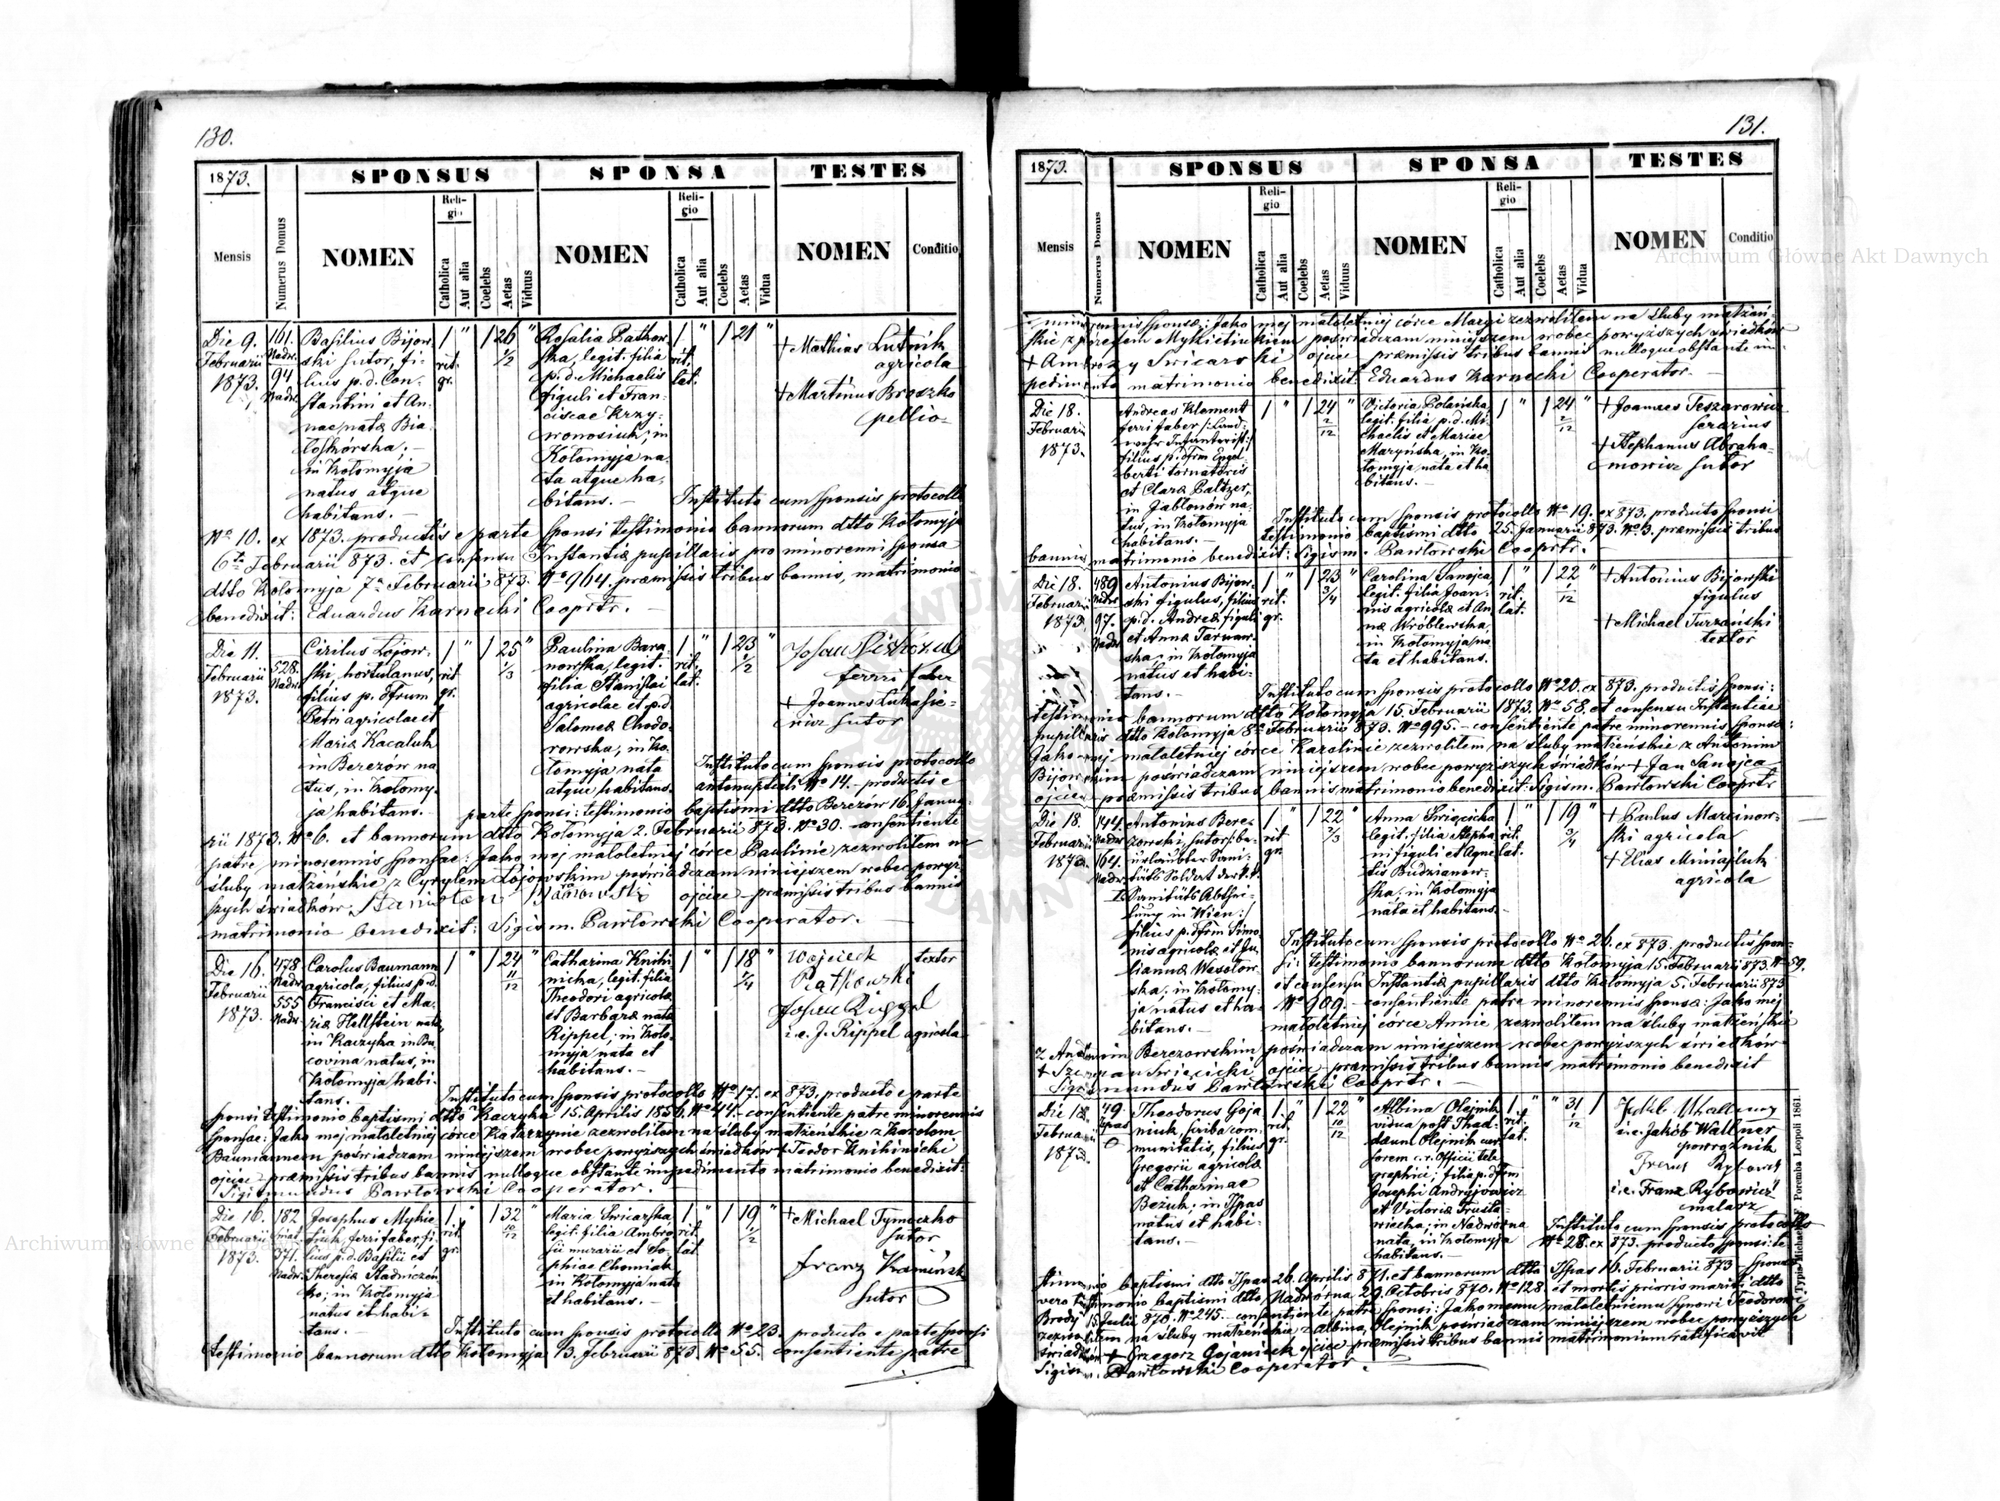 130.
1873.
SPONSUS
SPONSA
TESTES
Mensis
Numerus Domus
NOMEN
Religio
Catholica
Aut alia
Coelebs
Aetas
Viduus
NOMEN
Religio
Catholica
Aut alia
Coelebs
Aetas
Vidua
NOMEN
Conditio
Die 9.
Februarii
1873.
161.
Nadw.
94
Nadw.
Basilius Bijow-
ski sutor, fi-
lius p. d. Con-
stantini et An-
nae nata Bia-
loskórska; –
in Kołomyja
natus atque
habitans. –
1 " 1 26 "
rit.
gr.
1/2
Rosalia Ratkow-
ska, legit. filia
p. d. Michaelis
figuli et Fran-
ciscae Krzy-
wonosiuk; in
Kołomyja na-
ta atque ha-
bitans. –
1 " 1 21 "
rit.
lat.
+ Mathias Lutnik
agricola
+ Martinus Broszko
pellio–
Instituto cum sponsis protocollo
No 10. ex 1873. productis e parte sponsi testimonio bannorum dtto Kołomyja
6ta Februarii 873. et consensu Instantiæ pupillaris pro minorenni sponsa
dtto Kołomyja 7a Februarii 873. No 964. præmissis tribus bannis, matrimonio
benedixit: Eduardus Karnecki Cooprtr. –
Die 11.
Februarii
1873.
528.
Nadw.
Cirilus Łojow-
ski, hortulanus,
filius p. dfrum
Petri agricolae et
Mariæ Kacaluk
in Berezów na-
tus, in Kołomy-
ja habitans.
1 " 1 25 "
rit.
gr.
1/3
Paulina Bara-
nowska, legit.
filia Stanislai
agricolae et p. d.
Salomeæ Chodo-
rowska, in Ko-
łomyja nata
atque habitans.
1 " 1 23 "
rit.
lat.
1/2
ferri faber
+ Joannes Lukasie-
wicz sutor
Instituto cum sponsis protocollo
antenuptiali No 14. – productis e
parte sponsi: testimonio baptismi dtto Berezów 16. Janua-
rii 1873. No 6. et bannorum dtto Kołomyja 2. Februarii 873. No 30. consentiente
patre minorennis sponsae: Jako mej małoletniej córce Paulinie zezwoliłem na
śluby małżeńskie z Cyrylem Łojowskim poświadczam niniejszem wobec powyż-
szych świadków. Stanisław Baranowski ojciec – præmissis tribus bannis
matrimonio benedixit: Sigism. Pawłowski Cooperator. –
Die 16.
Februarii
1873.
478
Nadw.
555
Nadw.
Carolus Baumann
agricola, filius p. d.
Francisci et Ma-
riæ Hellstein nata
in Kaczyka in Bu-
covina natus, in
Kołomyja habi-
tans.
1 " 1 24 "
11/12
Catharina Knihi-
nicka, legit. filia
Theodori agricolæ
et Barbaræ nata
Rippel; in Koło-
myja nata et
habitans. –
1 " 1 18 "
3/4
Wojciech
Piątkowski
textor
Johan Rippel
i. e. J. Rippel agricola
Instituto cum sponsis protocollo No 17. ex 873, producto e parte
sponsi testimonio baptismi dtto Kaczyka 15. Aprilis 1856. No 44. – consentiente patre minorennis
sponsae: Jako mej małoletniej córce Katarzynie zezwoliłem na śluby małżeńskie z Karolem
Baumannem poświadczam niniejszem wobec powyższych świadków + Teodor Knihinicki
ojciec – præmissis tribus bannis nulloque obstante impedimento matrimonio benedixit:
Sigismundus Pawłowski Cooperator.
Die 16.
Februarii
1873.
182
371.
Nadw.
Josephus Mykie-
tiuk ferri faber, fi-
lius p. d. Basilii et
Theresiæ Radniczen-
ko; in Kołomyja
natus et habi-
tans. –
1 " 1 32 "
rit.
gr.
10/12
Maria Swicarska
legit. filia Ambro-
sii murarii et So-
phiae Chomiak
in Kołomyja nata
et habitans. –
1 " 1 19 "
rit.
lat.
1/2
+ Michael Tymoczko
sutor
Franz Kamiński
sutor
Instituto cum sponsis protocollo No 23. producto e parte sponsi
testimonio bannorum dtto Kołomyja 3. Februarii 873. No 55. consentiente patre
131.
1873.
SPONSUS
SPONSA
TESTES
Mensis
Numerus Domus
NOMEN
Religio
Catholica
Aut alia
Coelebs
Aetas
Viduus
NOMEN
Religio
Catholica
Aut alia
Coelebs
Aetas
Vidua
NOMEN
Conditio
minorennis sponsæ: Jako mej małoletniej córce Maryi zezwoliłem na śluby małżeń-
skie z Józefem Mykietiukiem poświadczam niniejszem wobec powyższych świadków
+ Ambroży Swicarski ojciec præmissis tribus bannis nulloque obstante im-
pedimento matrimonio benedixit: Eduardus Karnecki Cooperator. –
Die 18.
Februarii
1873.
Andreas Klement
ferri faber /: Land-
wehr Infanterist :/
filius p. dfrm Engel-
berti tornatoris
et Claræ Paltzer,
in Jabłonów na-
tus, in Kołomyja
habitans. –
1 " 1 24 "
2/12
Victoria Polańska,
legit. filia p. d. Mi-
chaelis et Mariae
Maryńska, in Ko-
łomyja nata et ha-
bitans. –
1 " 1 24 "
2/12
+ Joannes Teszarowicz
serarius
+ Stephanus Abraha-
mowicz sutor
Instituto cum sponsis protocollo No 19. ex 873. producto sponsi
testimonio baptismi dtto 25. Januarii 873. No 3. præmissis tribus
bannis matrimonio benedixit: Sigism. Pawłowski Cooprtr. –
Die 18.
Februarii
1873.
489
Nadw.
97.
Nadw.
Antonius Bijow-
ski figulus, filius
p. d. Andreæ figuli
et Annæ Tarnaw-
ska; in Kołomyja
natus et habi-
tans. –
1 " 1 23 "
rit.
gr.
3/4
Carolina Sanojca,
legit. filia Joan-
nis agricolæ et An-
næ Wróblewska,
in Kołomyja na-
ta et habitans.
1 " 1 22 "
rit.
lat.
1/12
+ Antonius Bijowski
figulus
+ Michael Turzański
textor
Instituto cum sponsis protocollo No 20. ex 873. productis sponsi:
testimonio bannorum dtto Kołomyja 15. Februarii 1873. No 58. et consensu Instantiae
pupillaris dtto Kołomyja 8a Februarii 873. No 995. – consentiente patre minorennis sponsæ:
Jako mej małoletniej córce Karolinie zezwoliłem na śluby małżeńskie z Antonim
Bijowskim poświadczam niniejszem wobec powyższych świadków + Jan Sanojca
ojciec – præmissis tribus bannis matrimonio benedixit: Sigism. Pawłowski Cooprtr
Die 18.
Februarii
1873.
144.
Nadw.
164.
Nadw.
Antonius Bere-
zowski, sutor /: be-
urlaubter Sani-
täts Soldat der k. k.
Sanitäts Abthei-
lung in Wien :/
filius p. dfrm Simo-
nis agricolæ et Ju-
liannæ Wesołow-
ska, in Kołomy-
ja natus et ha-
bitans. –
1 " 1 22 "
rit.
gr.
2/3
Anna Swięcicka
legit. filia Stepha-
ni figuli et Agne-
tis Budzianow-
ska, in Kołomyja
nata et habitans. –
1 " 1 19 "
rit.
lat.
3/4
+ Paulus Marcinow-
ski agricola
+ Elias Miniajluk
agricola
Instituto cum sponsis protocollo No 26. ex 873. productis spon-
si: testimonio bannorum dtto Kołomyja 15. Februarii 873. No 59.
et consensu Instantiæ pupillaris dtto Kołomyja 5. Februarii 873
No 909. – consentiente patre minorennis sponsæ: Jako mej
małoletniej córce Annie zezwoliłem na śluby małżeńskie
z Antonim Berezowskim poświadczam niniejszem wobec powyższych świadków
+ Szczepan Swięcicki ojciec præmissis tribus bannis matrimonio benedixit
Sigismundus Pawłowski Cooprtr. –
Die 18.
Februarii
1873.
49.
Ispas
Theodorus Goja-
niuk, scriba com-
munitatis, filius
Gregorii agricolæ
et Catharinae
Bezuk; in Ispas
natus et habi-
tans. –
1. " 1 22 "
rit.
gr.
10/12
Albina Olejnik
vidua post Thad-
daeum Olejnik cur-
sorem c. r. officii tele-
graphici, filia p. dfrm
Josephi Andryjowicz
et Victoriæ Trusle-
wiczka; in Nadworna
nata, in Kołomyja
habitans. –
1. " " 31 1
rit.
lat.
1/12
i. e. Jakób Wallner
powroźnik
i. e. Franz Rybowicz
malarz
Instituto cum sponsis protocollo
No 28. ex 873. producto sponsi: te-
stimonio baptismi dtto Ispas 26. Aprilis 871. et bannorum dtto Ispas 16. Februarii 873 – Sponsæ
vero testimonio baptismi dtto Nadworna 29. Octobris 870. No 128. et mortis prioris mariti dtto
Brody 15. Julii 870. No 245. – consentiente patre sponsi: Jako memu małoletniemu synowi Teodorowi
zezwoliłem na śluby małżeńskie z Albiną Olejnik poświadczam niniejszem wobec powyższych
świadków + Grzegorz Gojaniuk ojciec præmissis tribus bannis matrimonium ratificavit
Sigism. Pawłowski Cooperator.
Typis Michaelis F. Poremba Leopoli 1861.
Archiwum Główne Akt Dawnych
Archiwum Główne Akt Dawnych